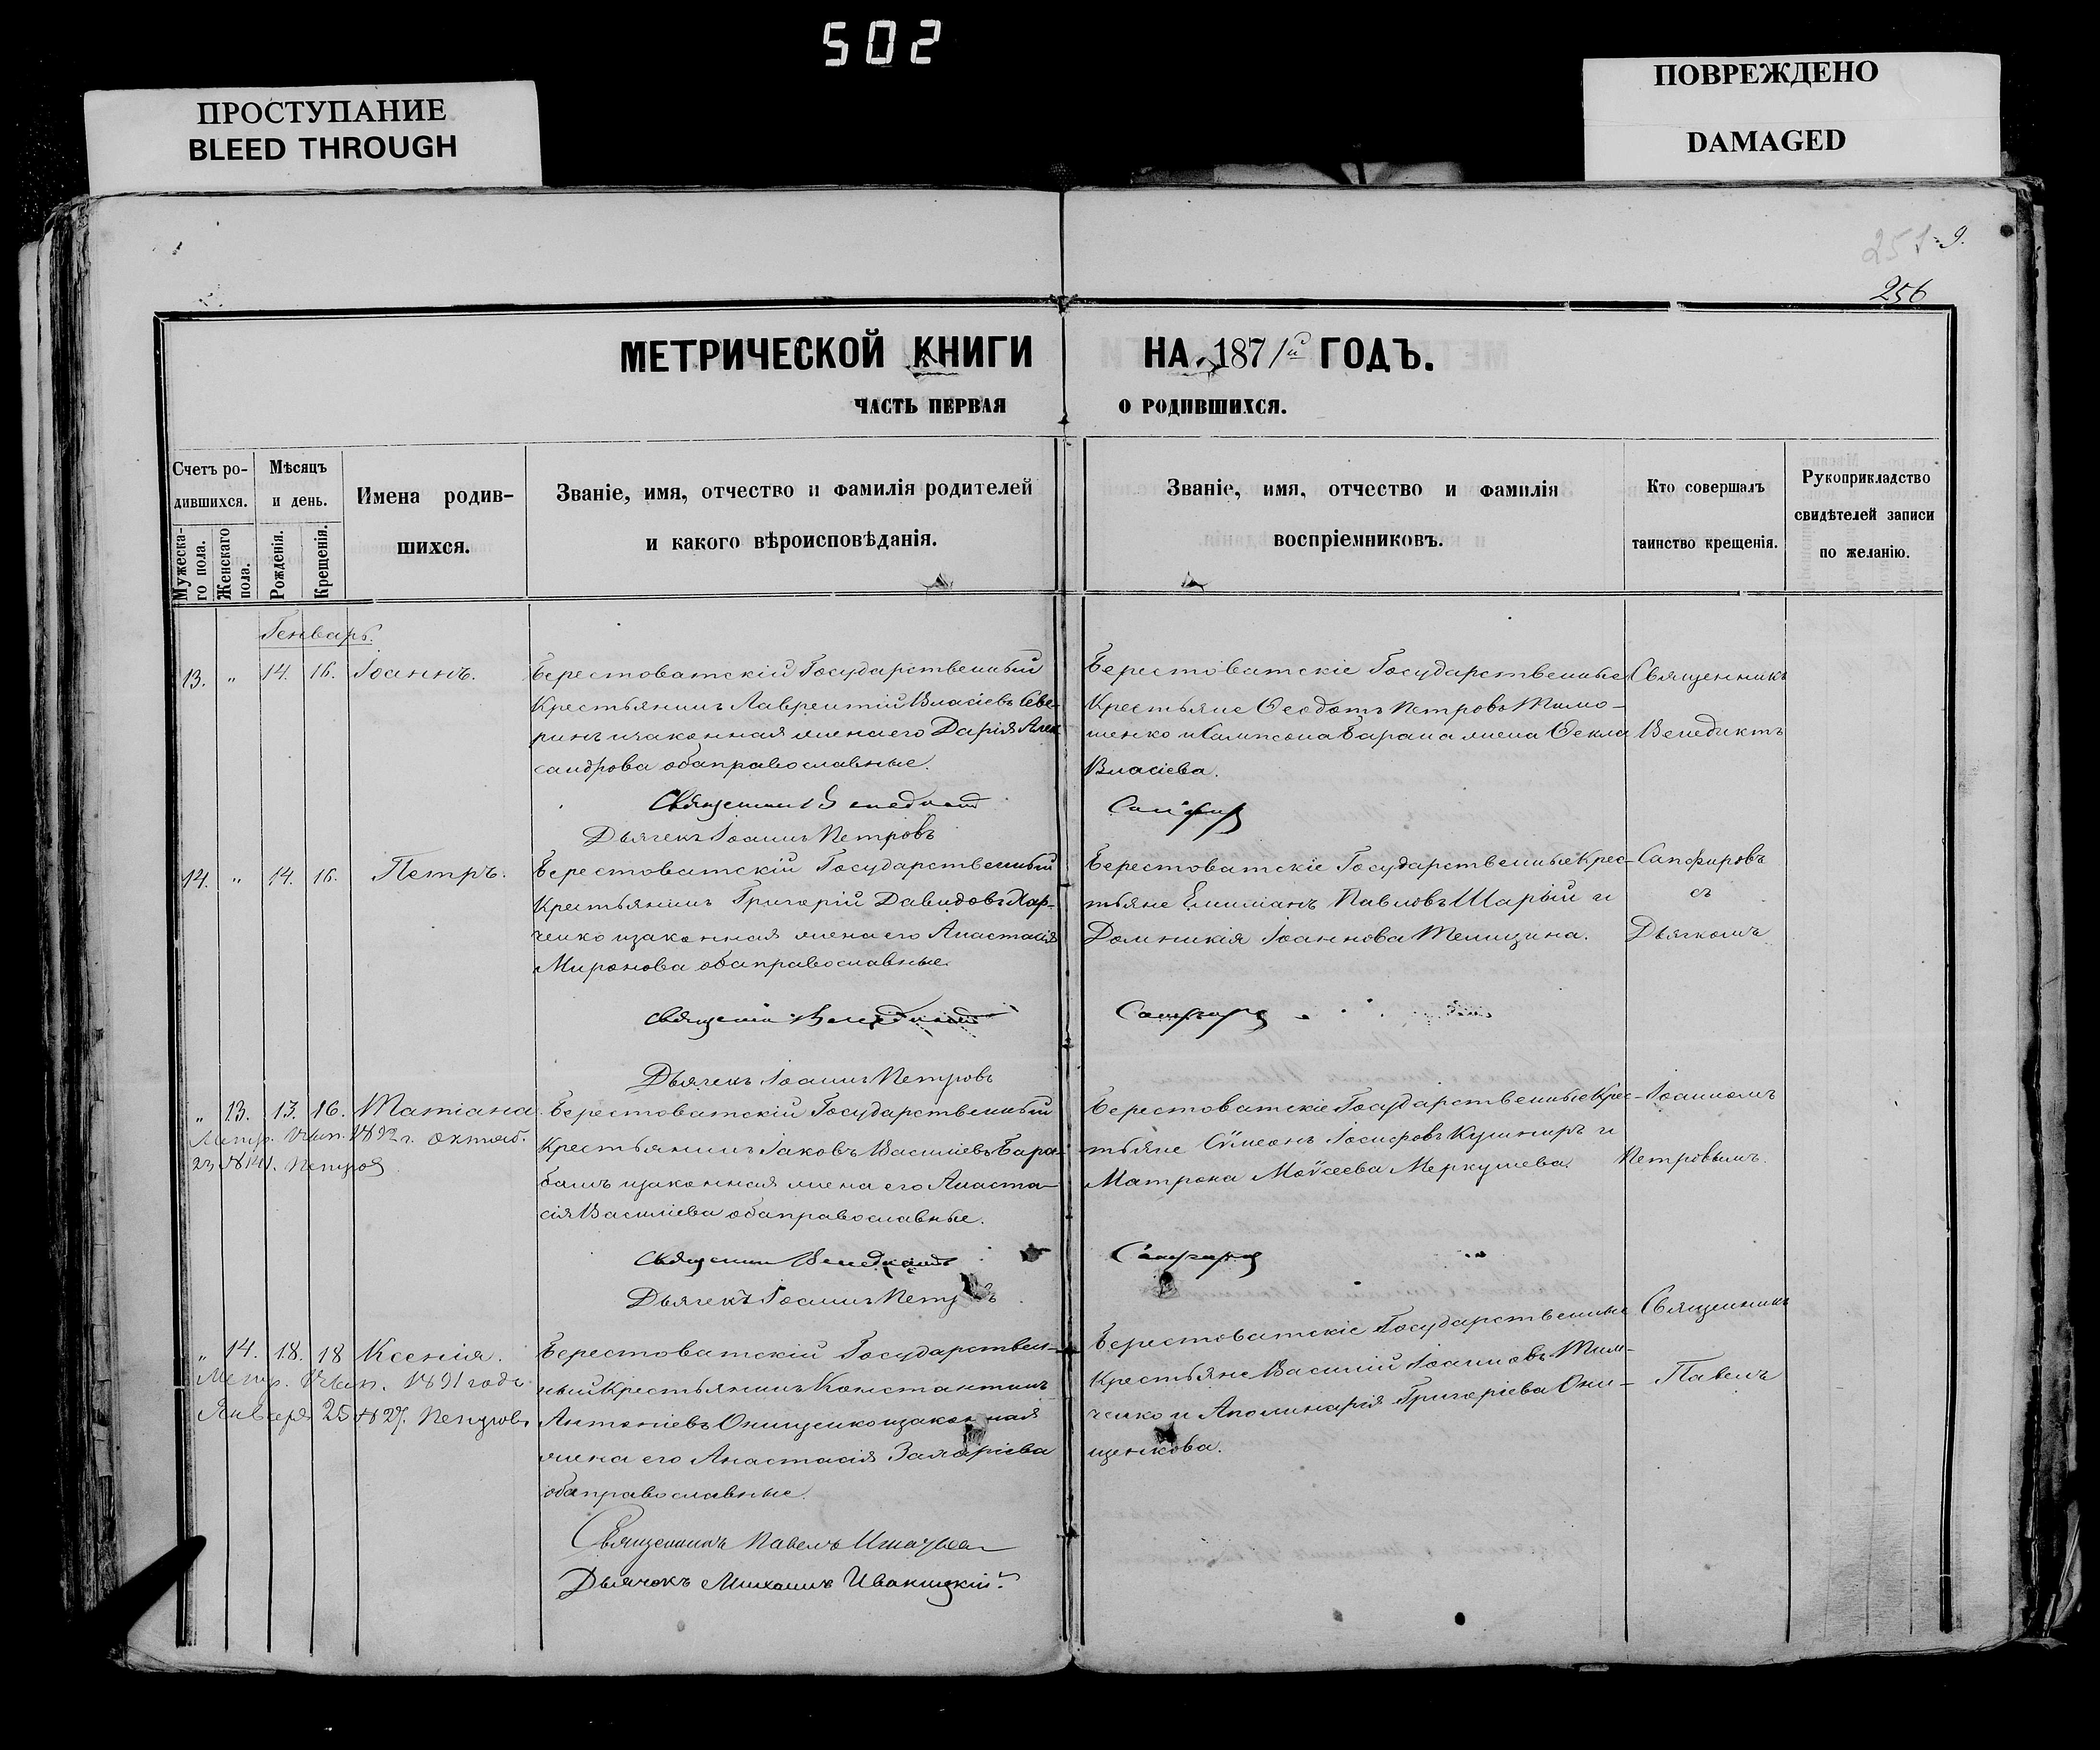 502
ПРОСТУПАНИЕ
BLEED THROUGH
ПОВРЕЖДЕНО
DAMAGED
251 9.
256
МЕТРИЧЕСКОЙ КНИГИ НА 1871й ГОДЪ.
ЧАСТЬ ПЕРВАЯ О РОДИВШИХСЯ.
Счетъ ро-
дившихся.
Мужеска-
го пола.
Женскаго
пола.
Мѣсяцъ
и день.
Рожденія.
Крещенія.
Имена родив-
шихся.
Званіе, имя, отчество и фамилія родителей
и какого вѣроисповѣданія.
Званіе, имя, отчество и фамилія
воспріемниковъ.
Кто совершалъ
таинство крещенія.
Рукоприкладство
свидѣтелей записи
по желанію.
Генварь.
13. „ 14. 16. Іоаннъ.
Берестоватскій Государственный
Крестьянинъ Лаврентій Власіевъ Севе-
ринъ изаконная жена его Дарія Алек
сандрова обаправославные.
Священникъ Венедиктъ
Дьячекъ Іоаннъ Петровъ
Берестоватскіе Государственные
Крестьяне Ѳеодотъ Петровъ Тимо-
шенко и Сампсона Барана жена Ѳекла
Власіева.
Сапфировъ
Священникъ
Венедиктъ
14. „ 14. 16. Петръ.
Берестоватскій Государственный
Крестьянинъ Григорій Давидовъ Хар-
ченко изаконная жена его Анастасія
Миронова обаправославные.
Священникъ Венедиктъ
Дьячекъ Іоаннъ Петровъ
Берестоватскіе Государственные Крес-
тьяне Емиліанъ Павловъ Шарый и
Домникія Іоаннова Телицина.
Сапфировъ
Сапфировъ
съ
Дьячкомъ
„ 13. 13. 16. Татіана.
Метр. вып. 1892 г. октяб.
23 №141. Петров
Берестоватскій Государственный
Крестьянинъ Іаковъ Василіевъ Бара-
банъ изаконная жена его Анаста-
сія Василіева обаправославные.
Священникъ Венедиктъ
Дьячекъ Іоаннъ Петровъ
Берестоватскіе Государственные Крес-
тьяне Сѵмеонъ Іосифовъ Кушниръ и
Матрона Моѵсеева Меркушева.
Сапфировъ
Іоанномъ
Петровымъ.
„ 14. 18. 18 Ксенія.
Метр. вып. 1891 года
Января 25 №27. Петровъ
Берестоватскій Государствен-
ный Крестьянинъ Константинъ
Антоніевъ Онищенко изаконная
жена его Анастасія Захаріева
обаправославные.
Священникъ Павелъ
Дьячокъ Михаилъ Иваницкій.
Берестоватскіе Государственные
Крестьяне Василій Іоанновъ Тим-
ченко и Аполинарія Григоріева Они-
щенкова.
Священникъ
Павелъ